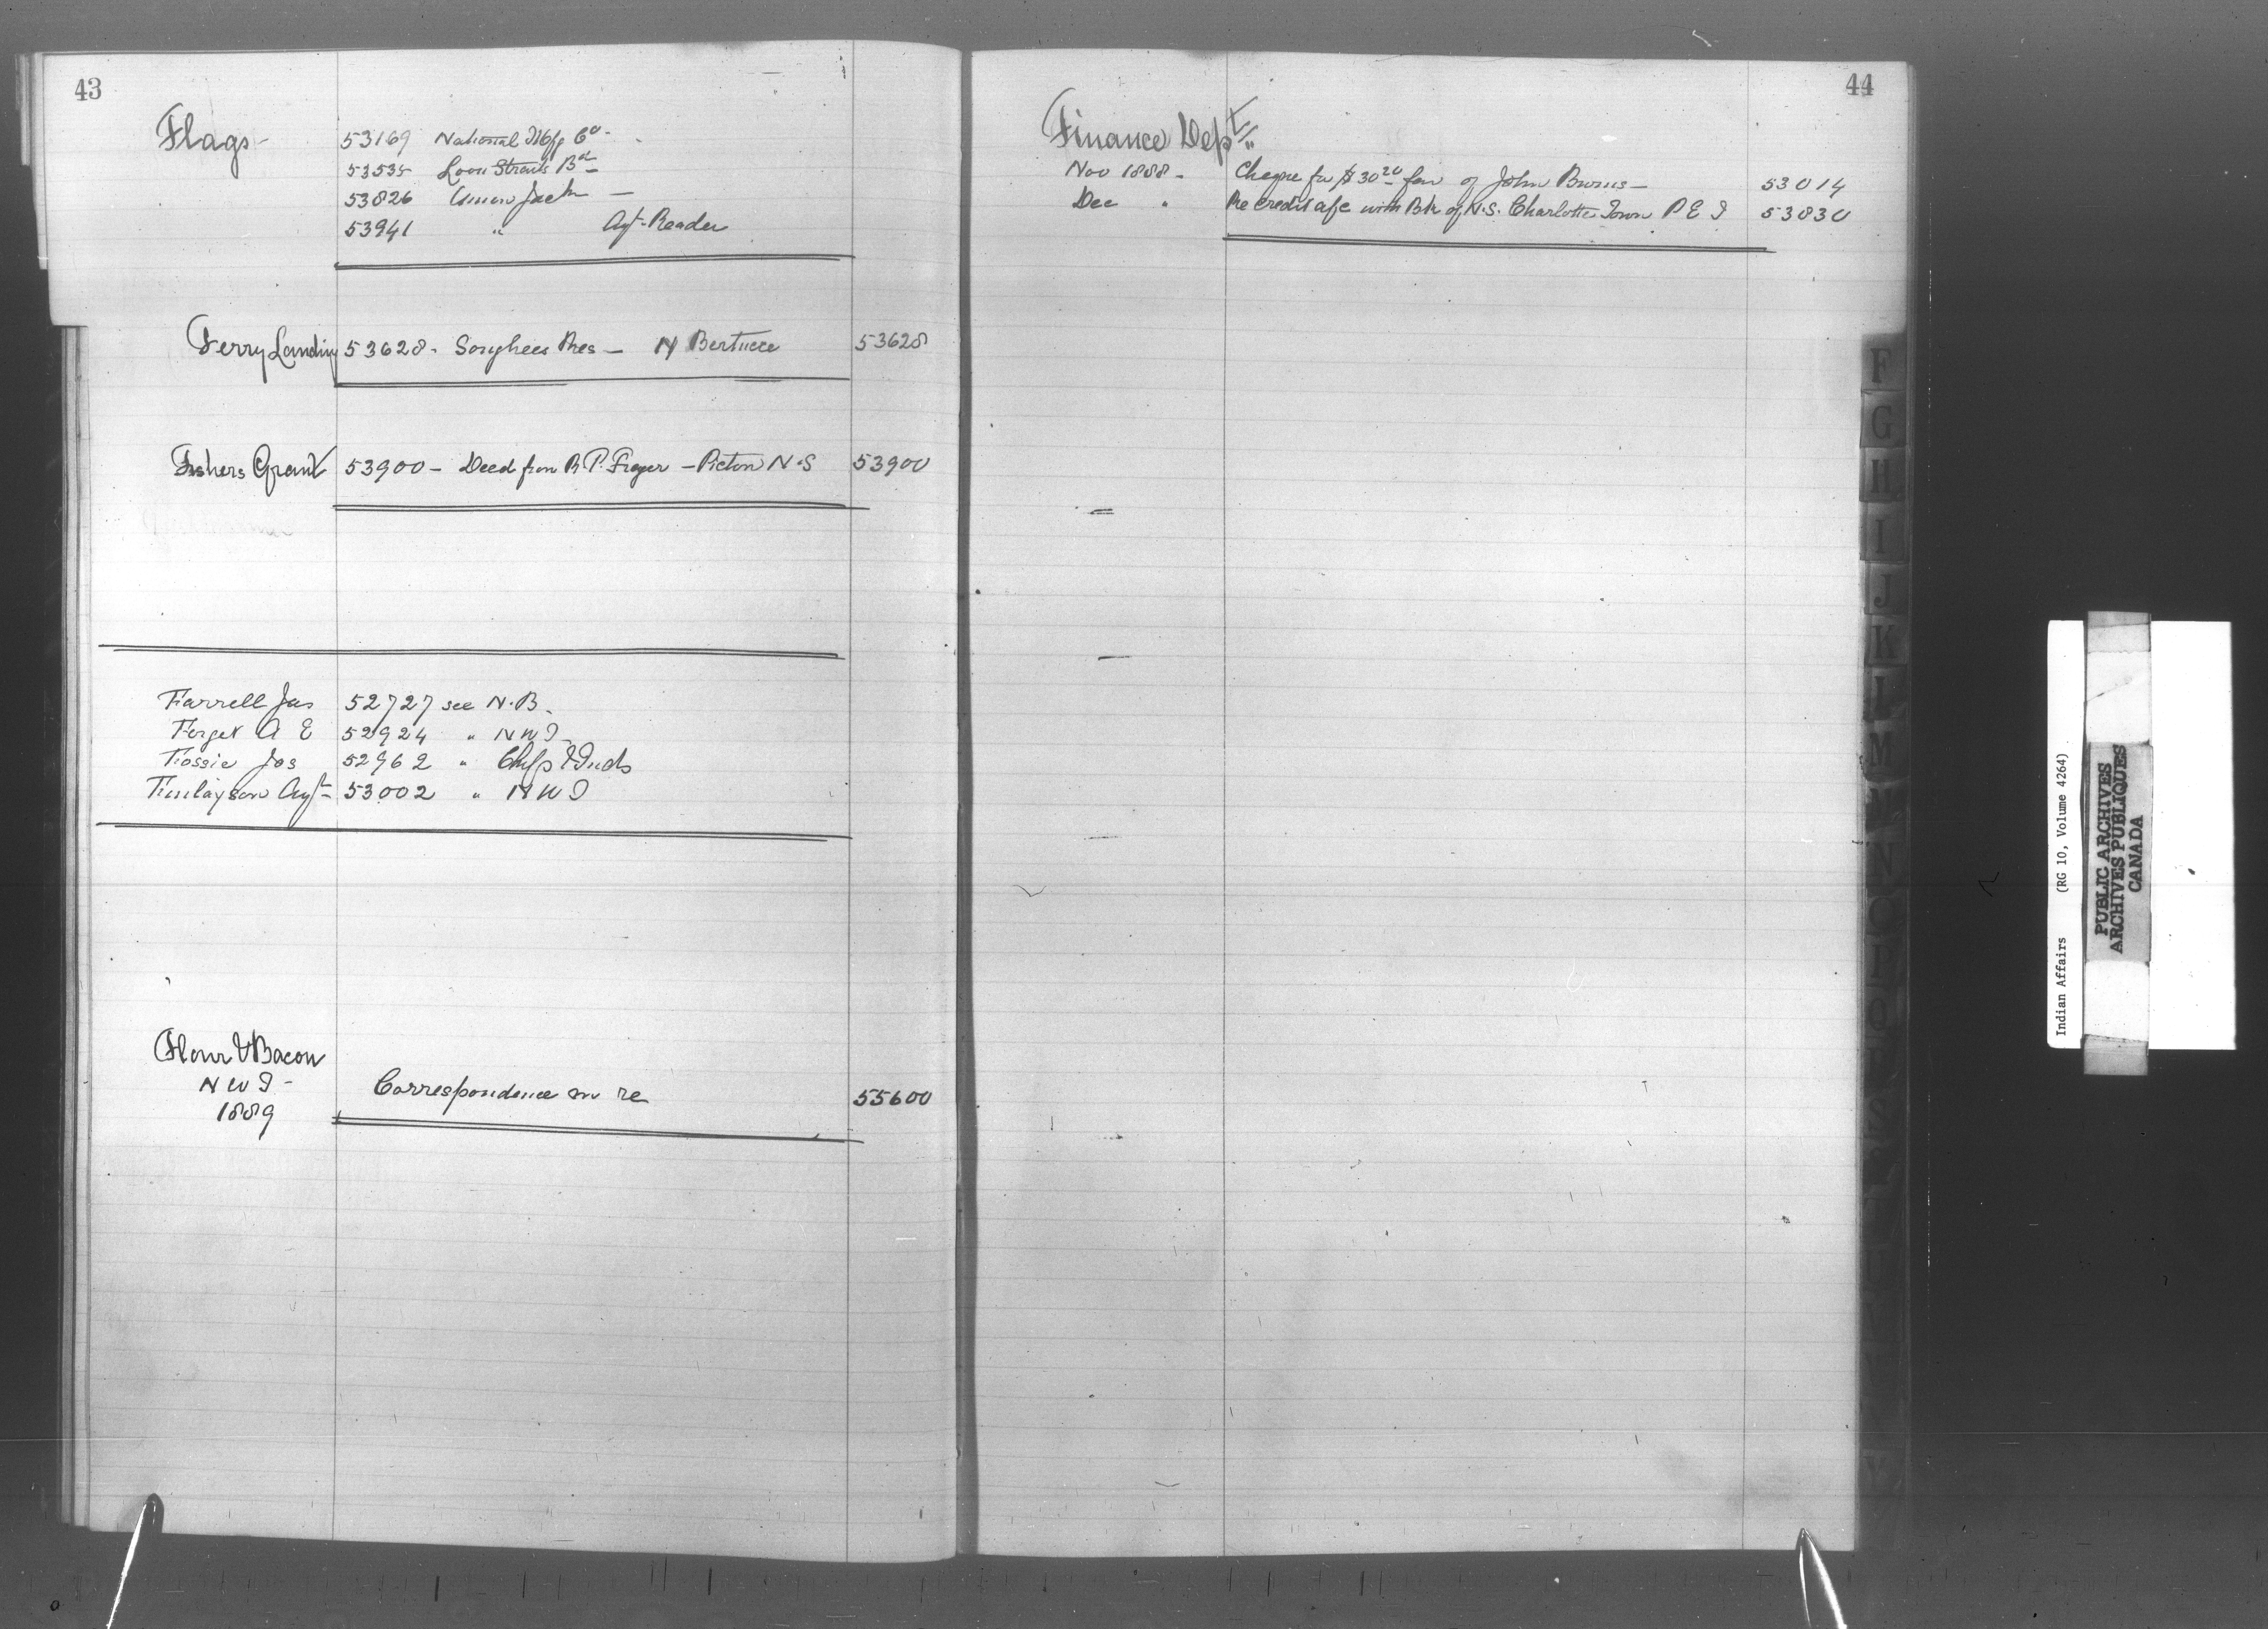 43
Flags -
53169 National Mfg Co -
53535 Loon Straits Bd -
53826 Union Jack -
53941 " Agt. Reader
Ferry Landing 53628 - Songhees Res - N Bertucce 53628
Fishers Grant 53900 - Deed from R. P. Fraser - Pictou N.S 53900
Farrell Jas 52727 see N.B.
Forget A E 52924 " N W T
Fossie Jos 52962 " Chfs & Inds
Finlayson Agt 53002 " N W T
Flour & Bacon
N W T -
1889
Correspondence in re 55600
44
Finance Dept
Nov 1888 - Cheque for $30 20 fav of John Burns - 53014
Dec " Re credit a/c with Bk of N.S. Charlotte Town P E I 53830
F
G
H
I
J
K
L
M
N
O
P
Q
S
U
Indian Affairs (RG 10, Volume 4264)
PUBLIC ARCHIVES
ARCHIVES PUBLIQUES
CANADA